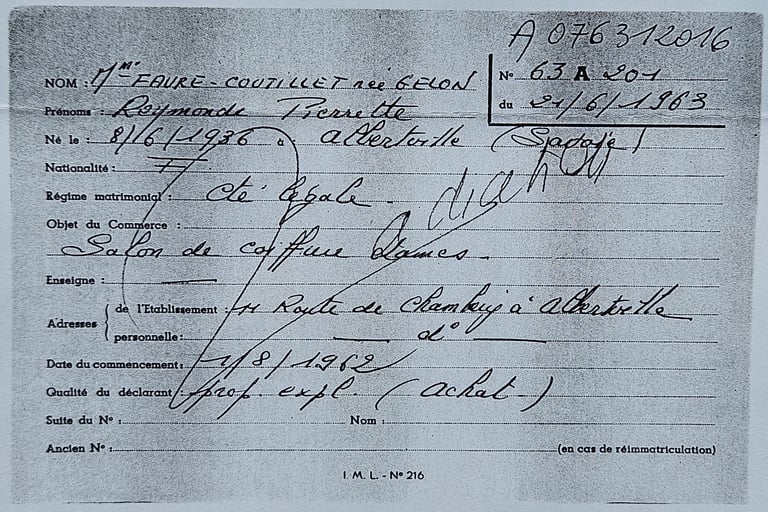 A 076312016
NOM : Mme FAURE-COUTILLET née GELON
N° 63 A 201
Prénoms : Raymonde Pierrette
du 21/6/1963
Né le : 8/6/1936 à Albertville (Savoie)
Nationalité :
Régime matrimonial : Cté légale
Objet du Commerce :
Salon de coiffure Dames
Enseigne :
Adresses de l'Etablissement : Route de Chambéry à Albertville
personnelle : d°
Date du commencement : 1/8/1962
Qualité du déclarant : prop. expl. (achat)
Suite du N° : Nom :
Ancien N° : (en cas de réimmatriculation)
I. M. L. - N° 216